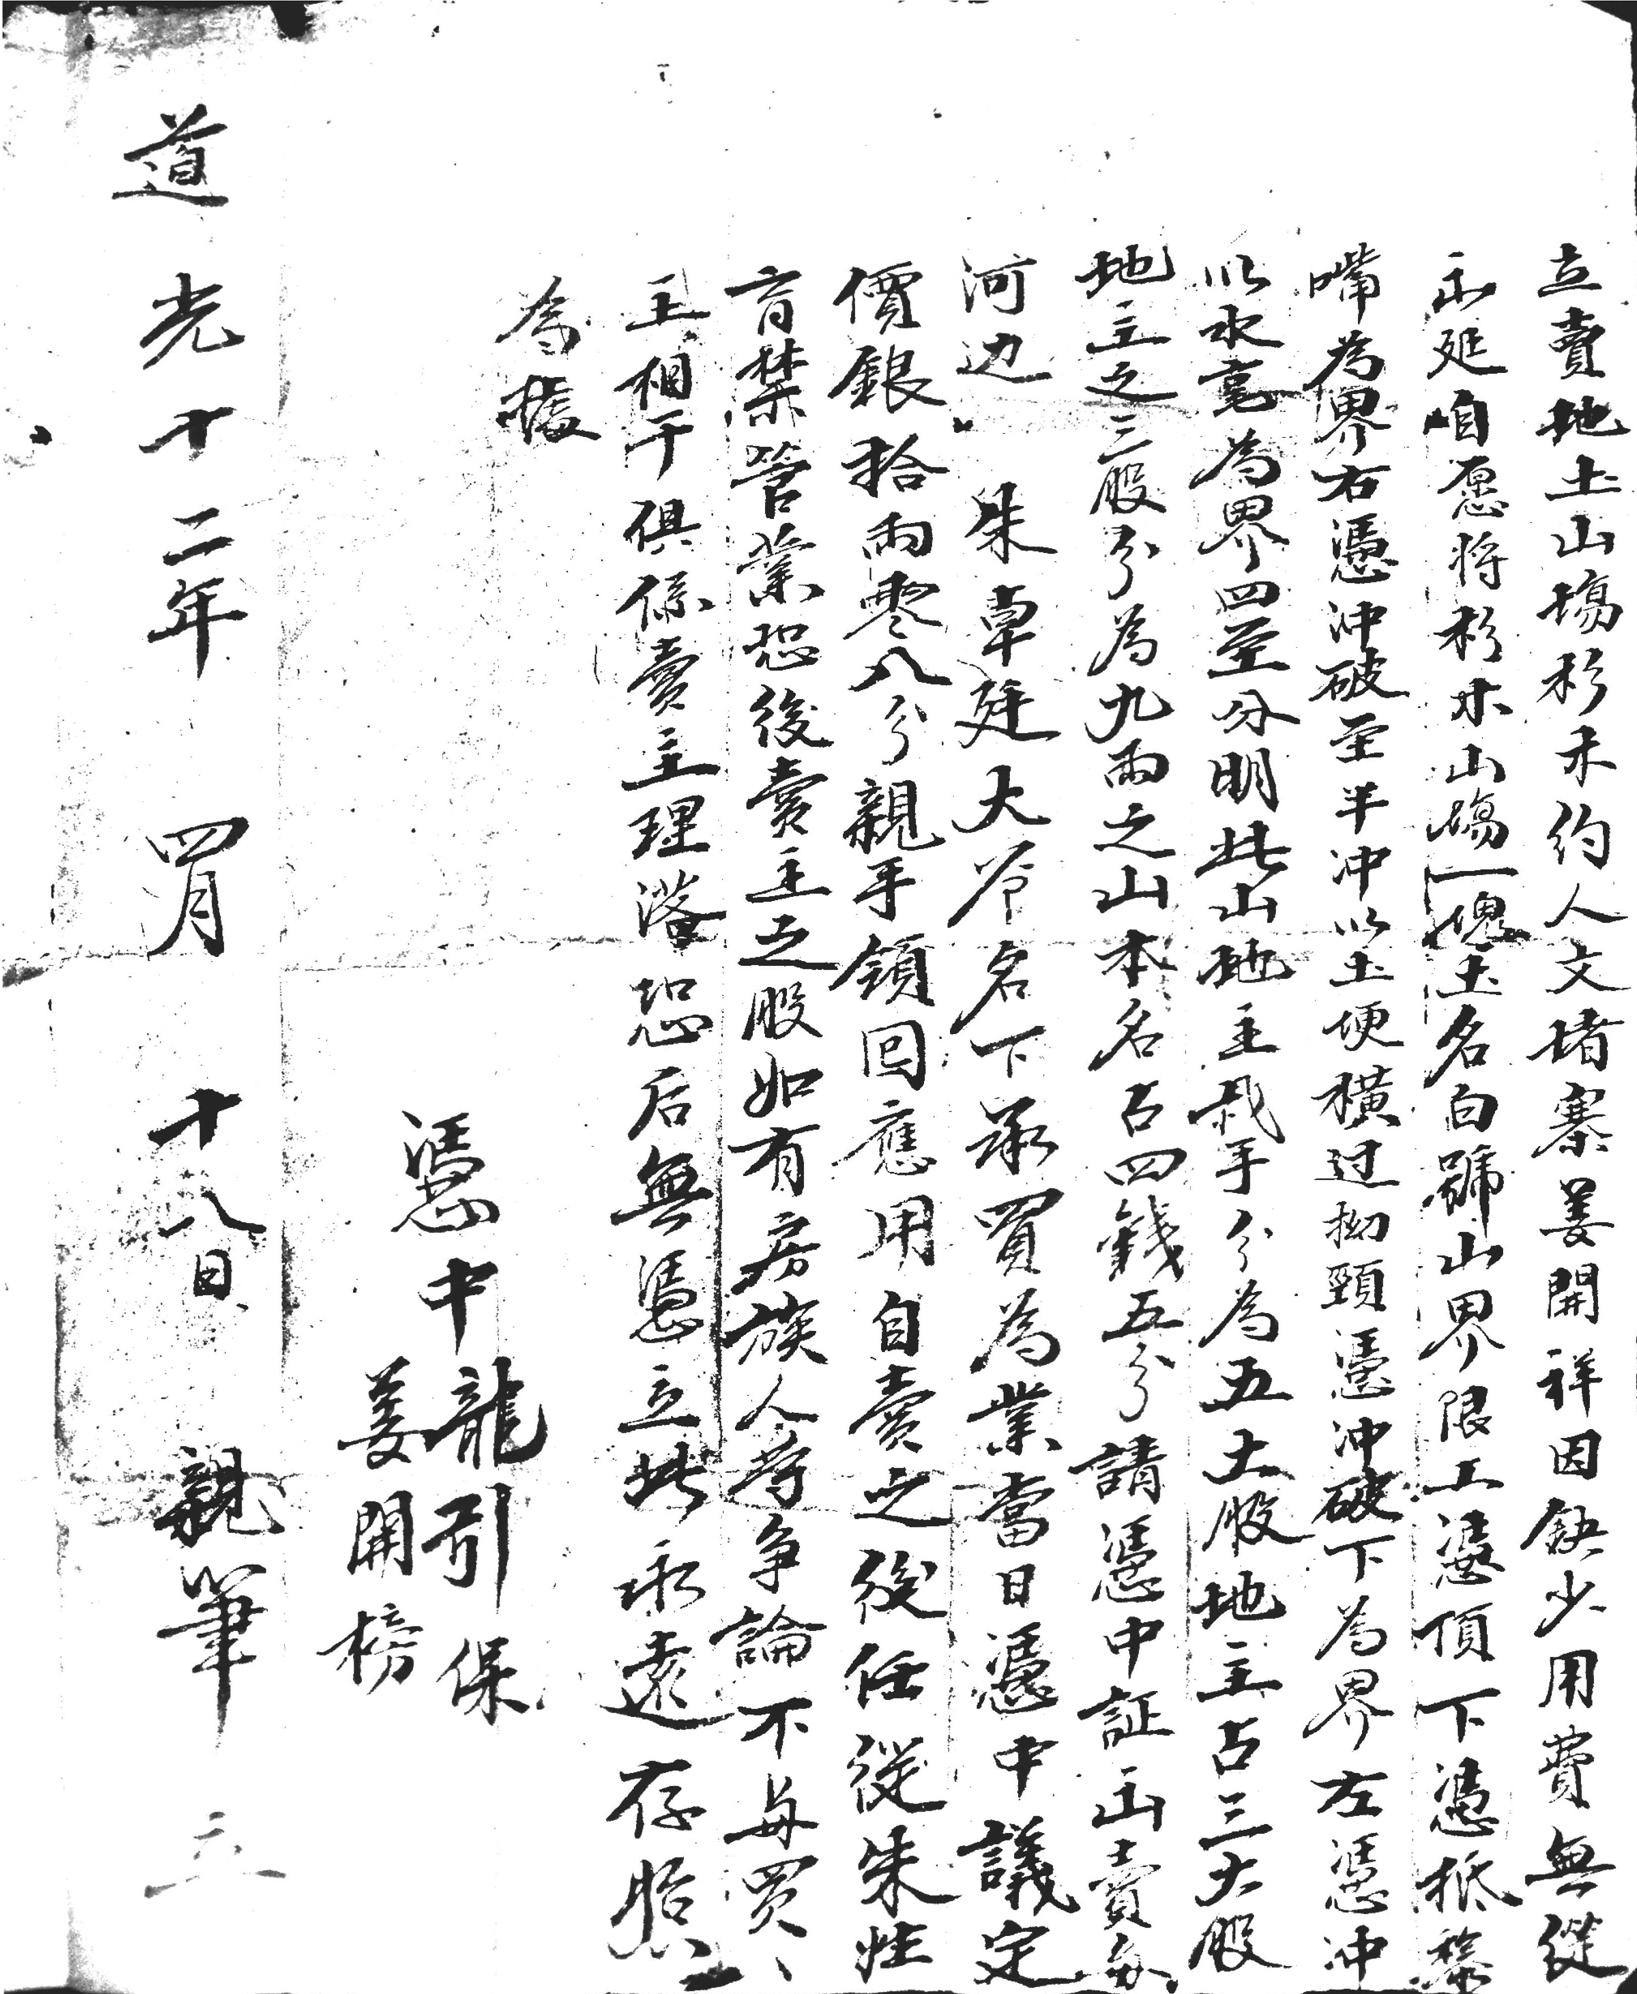 立賣地土山塲杉木約人文堵寨姜開祥因缺少用費無從
出延自愿將杉木山塲一塊土名白號山界限上憑頂下憑抵
嘴為界右憑冲破至半冲以土埂橫过拗頸憑冲破下為界左憑冲
以水毫為界四至分明此山地主栽手分為五大股地主占三大股
地主之三股分為九両之山本名占四錢五分請憑中証出賣與
河边 朱卓廷大爷名下承買為業當日憑中議定
價銀拾両零八分親手領回應用自賣之後任從朱姓
育禁管業恐後賣主之股如有房族人等争論不與買、
主相干俱係賣主理落恐后無憑立此永遠存照
為據
憑中 龍引保
姜開榜
道光十二年 四月 十八日 親筆 立